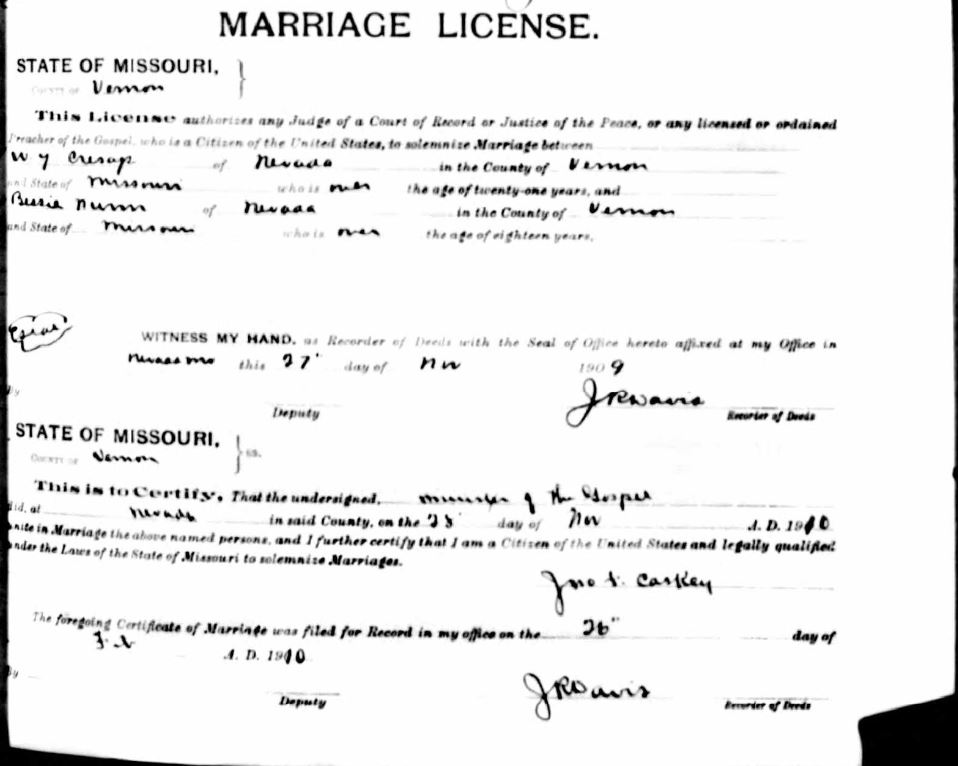 MARRIAGE LICENSE.
STATE OF MISSOURI,
COUNTY OF Vernon
This License authorizes any Judge of a Court of Record or Justice of the Peace, or any licensed or ordained
Preacher of the Gospel, who is a Citizen of the United States, to solemnize Marriage between
W Y Cresap of Nevada in the County of Vernon
and State of Missouri who is over the age of twenty-one years, and
Bessie Nunn of Nevada in the County of Vernon
and State of Missouri who is over the age of eighteen years,
WITNESS MY HAND, as Recorder of Deeds with the Seal of Office hereto affixed at my Office in
Nevada Mo this 27" day of Nov 1909
By
J R Davis
Deputy Recorder of Deeds
STATE OF MISSOURI,
COUNTY OF Vernon ss.
This is to Certify, That the undersigned, minister of the Gospel
did, at Nevada in said County, on the 28 day of Nov A. D. 1910
unite in Marriage the above named persons, and I further certify that I am a Citizen of the United States and legally qualified
under the Laws of the State of Missouri to solemnize Marriages.
Jno T. Caskey
The foregoing Certificate of Marriage was filed for Record in my office on the 26" day of
A. D. 1910
By
J R Davis
Deputy Recorder of Deeds